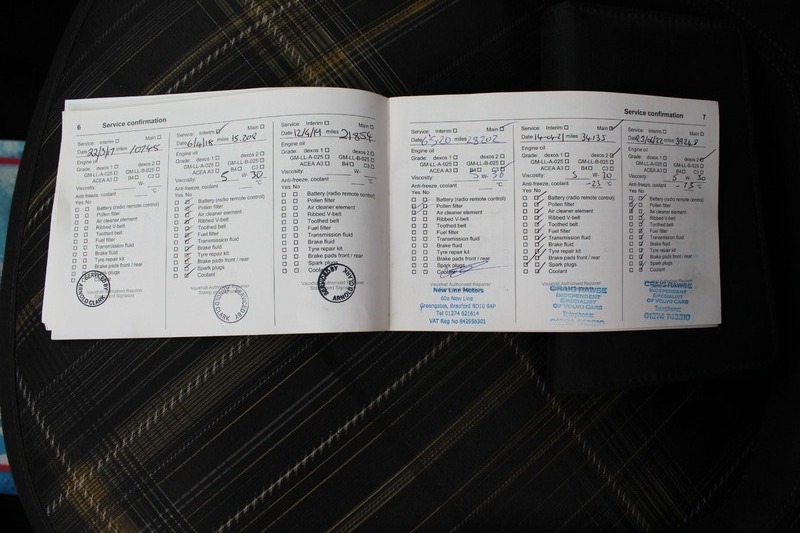 6 Service confirmation
Service: Interim Main
Date 22/5/17 miles 10745
Engine oil
Grade: dexos 1 dexos 2
GM-LL-A-025 GM-LL-B-025
ACEA A3 B4 C3
Viscosity: W-
Anti-freeze, coolant °C
Yes No
Battery (radio remote control)
Pollen filter
Air cleaner element
Ribbed V-belt
Toothed belt
Fuel filter
Transmission fluid
Brake fluid
Tyre repair kit
Brake pads front / rear
Spark plugs
SERVICED BY
ARNOLD CLARK
Service: Interim Main
Date 6/4/18 miles 15.208
Engine oil
Grade: dexos 1 dexos 2
GM-LL-A-025 GM-LL-B-025
ACEA A3 B4 C3
Viscosity: 5 W- 30
Anti-freeze, coolant °C
Yes No
Battery (radio remote control)
Pollen filter
Air cleaner element
Ribbed V-belt
Toothed belt
Fuel filter
Transmission fluid
Brake fluid
Tyre repair kit
Brake pads front / rear
Spark plugs
Coolant
Vauxhall Authorised Repairer
SERVICED BY
ARNOLD CLARK
Service: Interim Main
Date 12/4/19 miles 21854
Engine oil
Grade: dexos 1 dexos 2
GM-LL-A-025 GM-LL-B-025
ACEA A3 B4 C3
Viscosity: W-
Anti-freeze, coolant °C
Yes No
Battery (radio remote control)
Pollen filter
Air cleaner element
Ribbed V-belt
Toothed belt
Fuel filter
Transmission fluid
Brake fluid
Tyre repair kit
Brake pads front / rear
Spark plugs
SERVICED BY
ARNOLD CLARK
Service confirmation 7
Service: Interim Main
Date miles 28202
Engine oil
Grade: dexos 1 dexos 2
GM-LL-A-025 GM-LL-B-025
ACEA A3 B4 C3
Viscosity: 5 W- 30
Anti-freeze, coolant °C
Yes No
Battery (radio remote control)
Pollen filter
Air cleaner element
Ribbed V-belt
Toothed belt
Fuel filter
Transmission fluid
Brake fluid
Tyre repair kit
Brake pads front / rear
Spark plugs
Coolant
Vauxhall Authorised Repairer
New Line Motors
60a New Line
Greengates, Bradford BD10 9AP
Tel 01274 621614
VAT Reg No 842956301
Service: Interim Main
Date 14-04-21 miles 34135
Engine oil
Grade: dexos 1 dexos 2
GM-LL-A-025 GM-LL-B-025
ACEA A3 B4 C3
Viscosity: 5 W- 30
Anti-freeze, coolant -23 °C
Yes No
Battery (radio remote control)
Pollen filter
Air cleaner element
Ribbed V-belt
Toothed belt
Fuel filter
Transmission fluid
Brake fluid
Tyre repair kit
Brake pads front / rear
Spark plugs
Coolant
Vauxhall Authorised Repairer
CRAIG RAWSE
INDEPENDENT
SPECIALIST
OF VOLVO CARS
Telephone:
Service: Interim Main
Date miles
Engine oil
Grade: dexos 1 dexos 2
GM-LL-A-025 GM-LL-B-025
ACEA A3 B4 C3
Viscosity: 5 W- 30
Anti-freeze, coolant °C
Yes No
Battery (radio remote control)
Pollen filter
Air cleaner element
Ribbed V-belt
Toothed belt
Fuel filter
Transmission fluid
Brake fluid
Tyre repair kit
Brake pads front / rear
Spark plugs
Coolant
CRAIG RAWSE
INDEPENDENT
SPECIALIST
OF VOLVO CARS
Telephone: